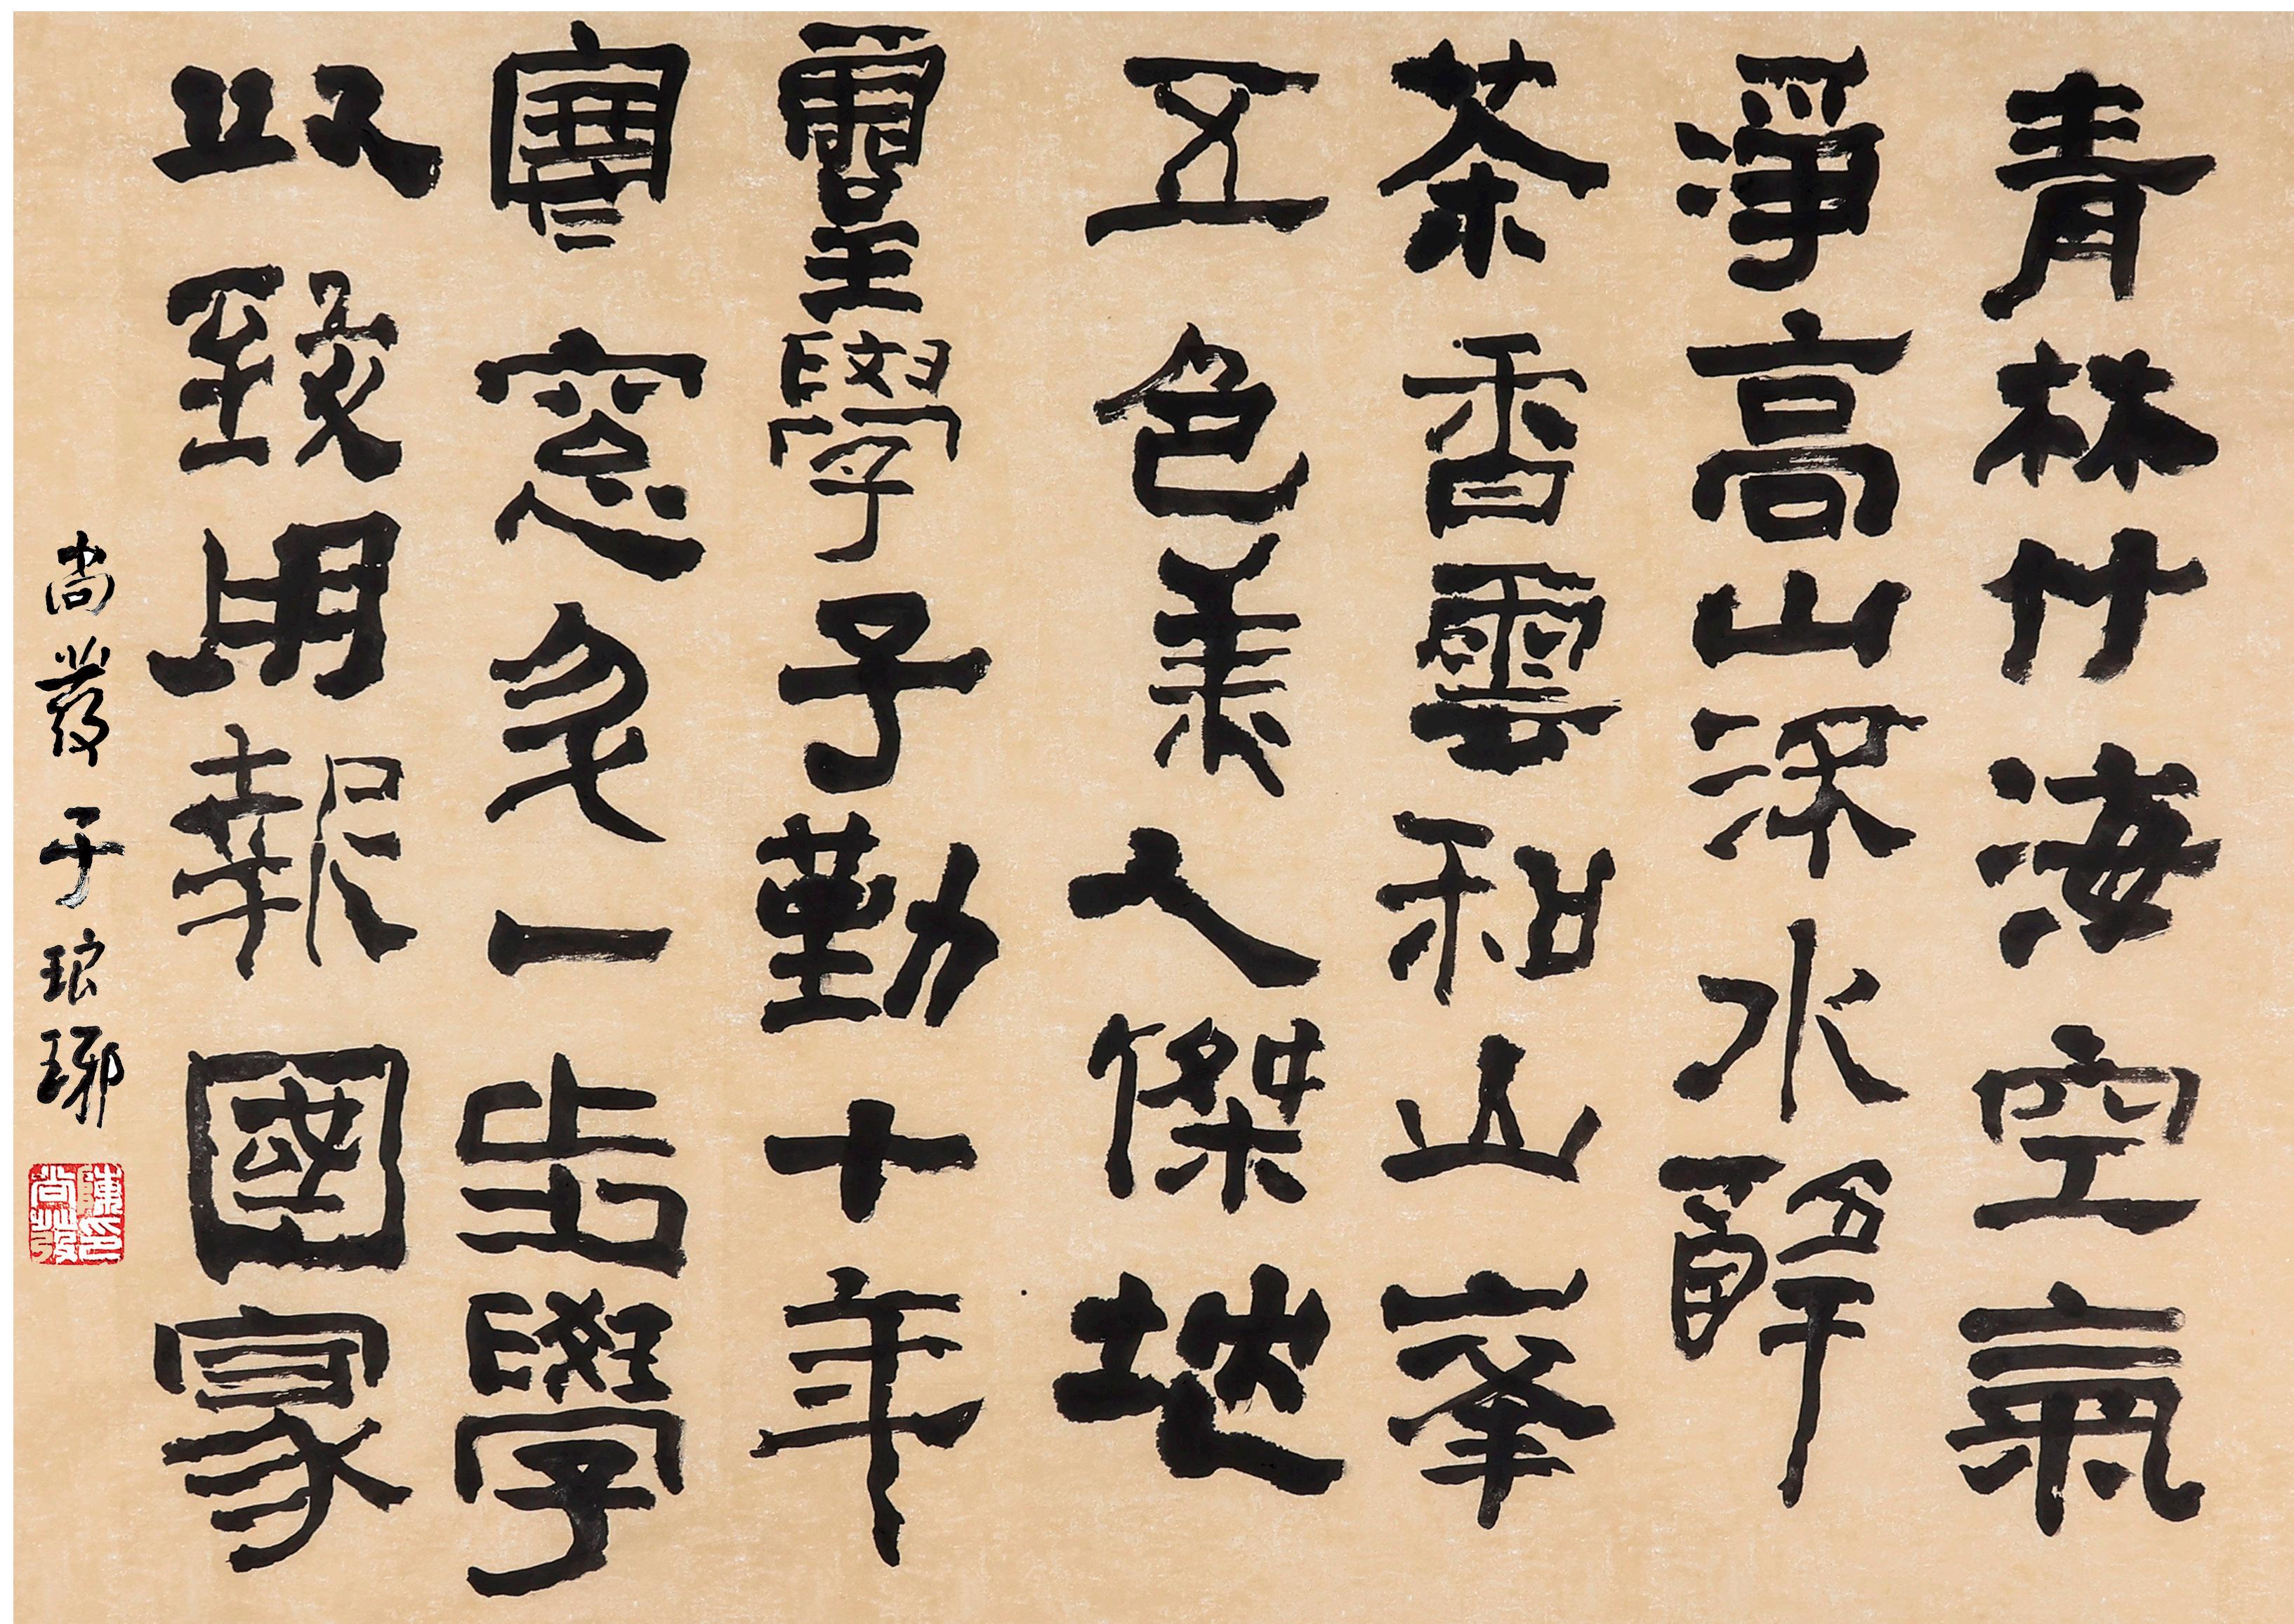 青林竹海空氣
淨高山深水醉
茶香雲和山峯
五色美人傑地
靈學子勤十年
寒窓一步學
以致用報國家
尚發于琅琊
陳印尚發